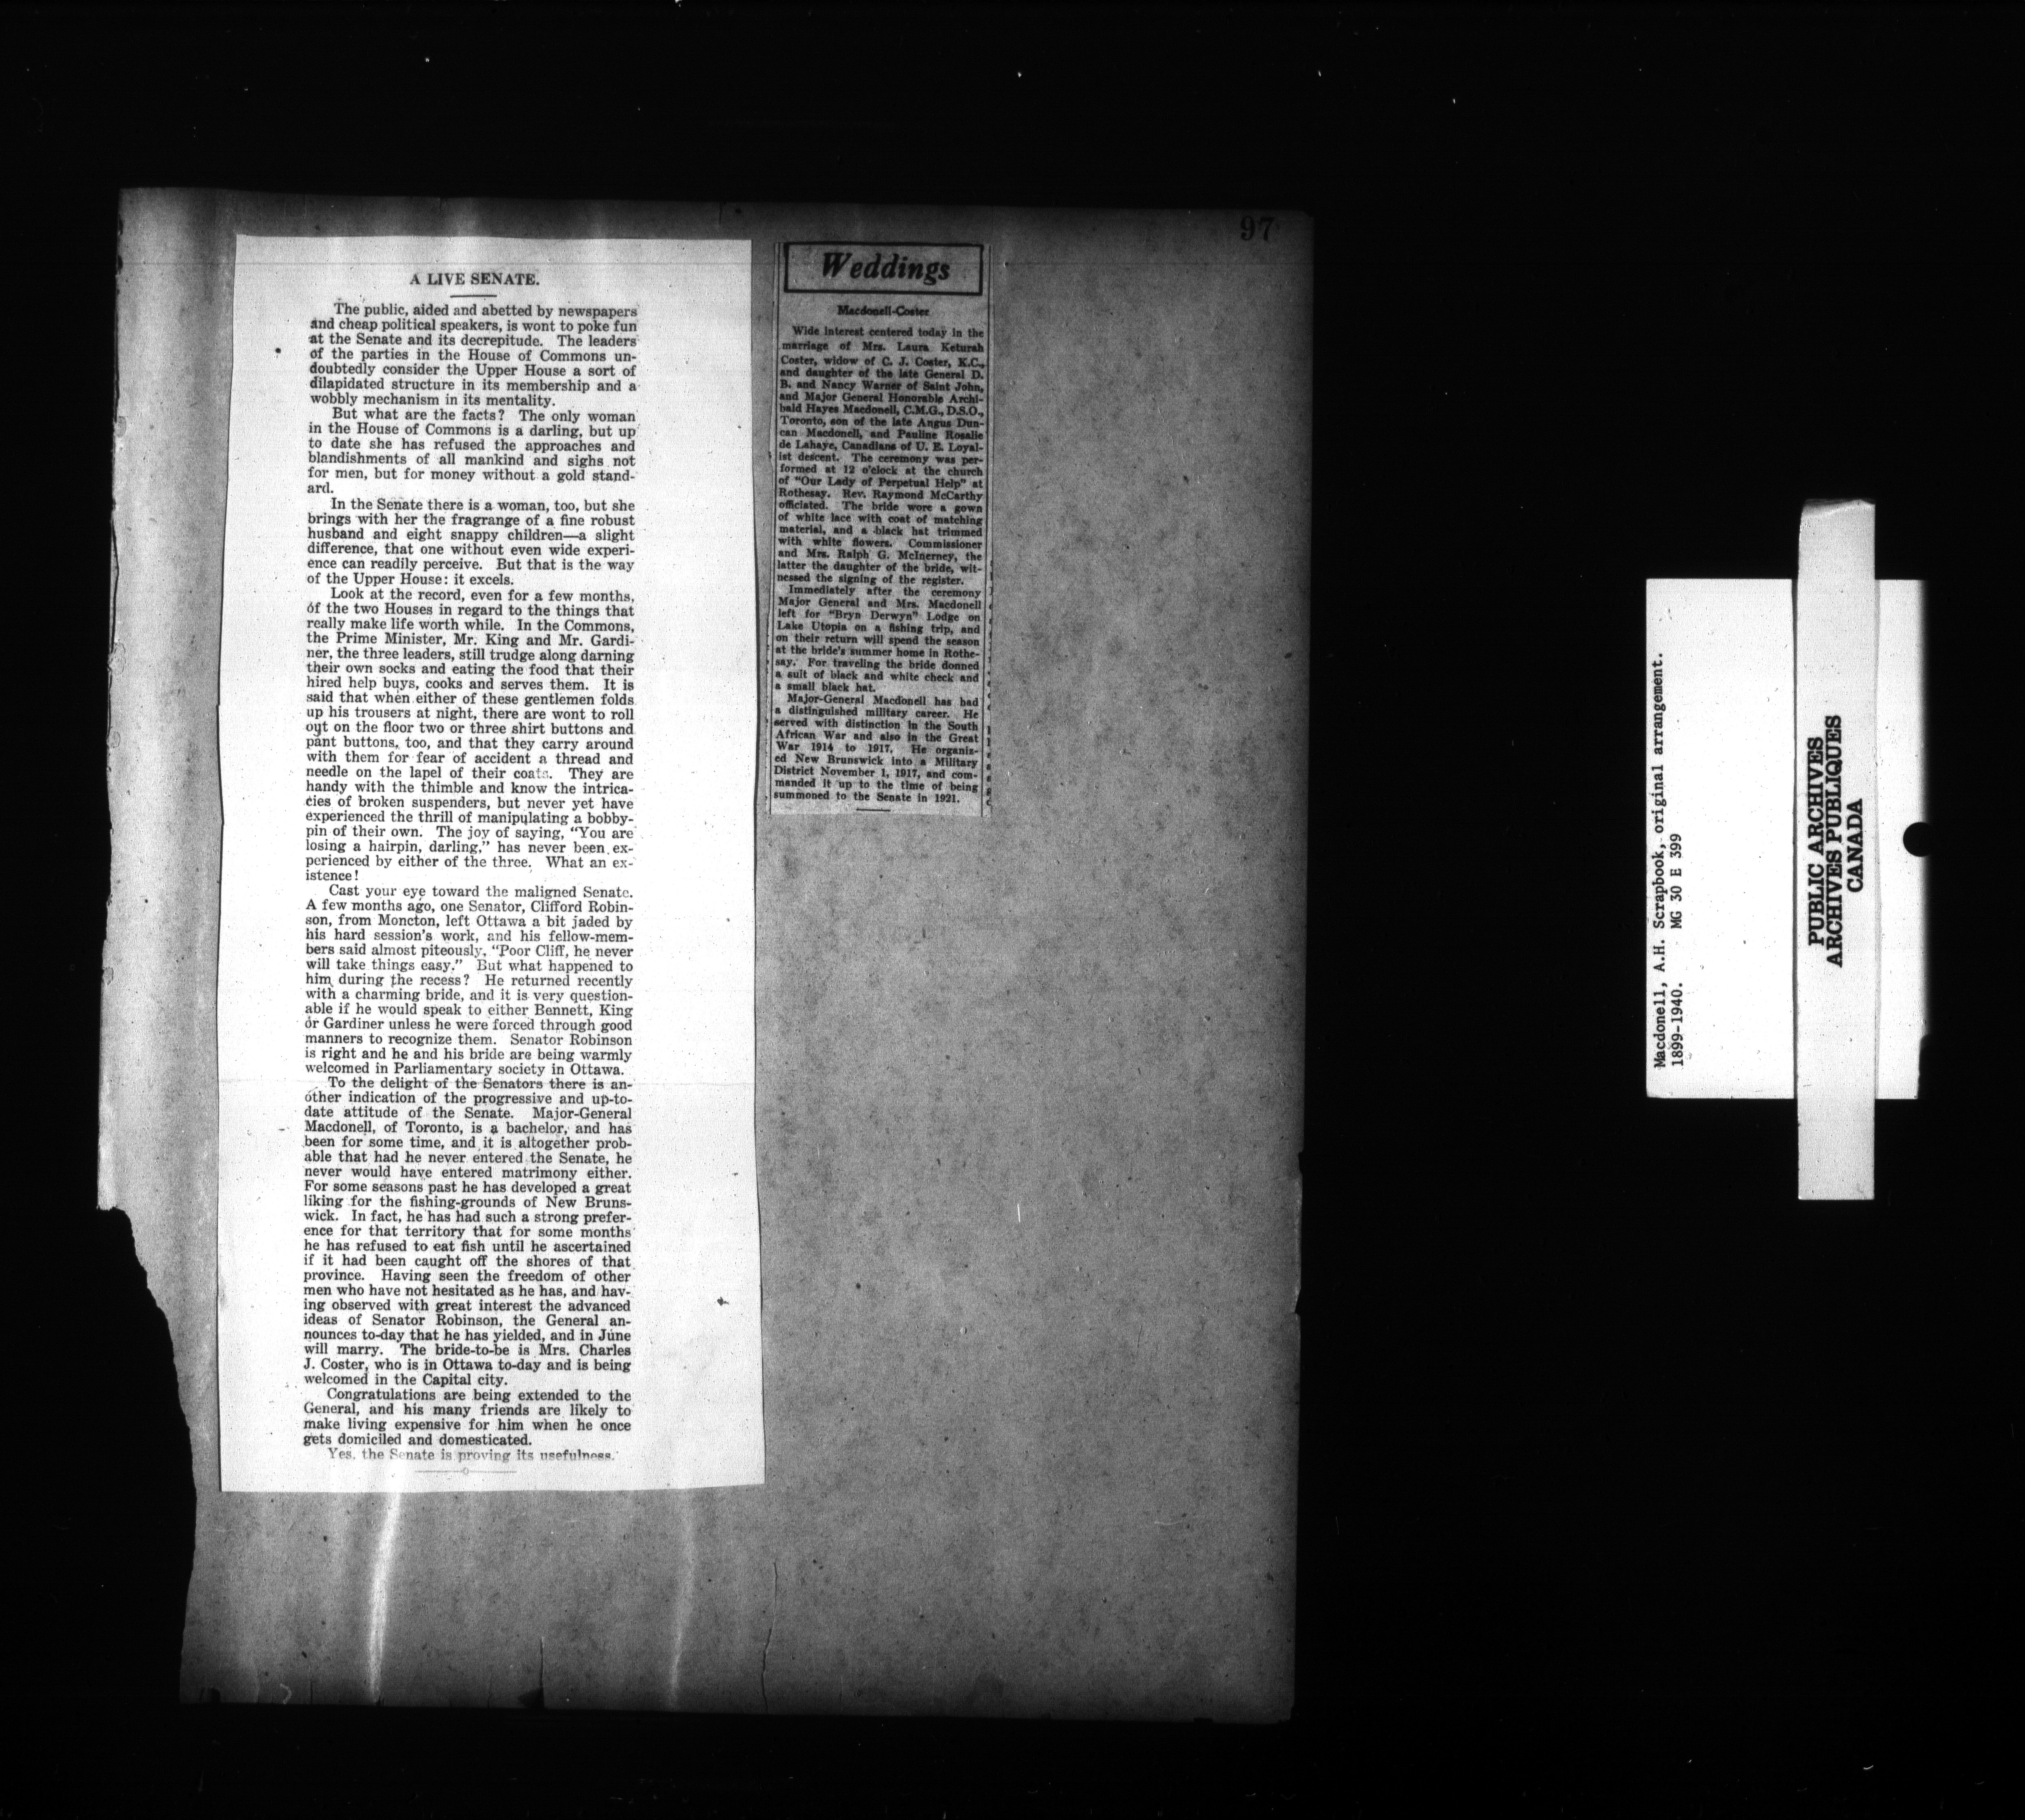 97
A LIVE SENATE.
The public, aided and abetted by newspapers
and cheap political speakers, is wont to poke fun
at the Senate and its decrepitude. The leaders
of the parties in the House of Commons un-
doubtedly consider the Upper House a sort of
dilapidated structure in its membership and a
wobbly mechanism in its mentality.
But what are the facts? The only woman
in the House of Commons is a darling, but up
to date she has refused the approaches and
blandishments of all mankind and sighs not
for men, but for money without a gold stand-
ard.
In the Senate there is a woman, too, but she
brings with her the fragrange of a fine robust
husband and eight snappy children—a slight
difference, that one without even wide experi-
ence can readily perceive. But that is the way
of the Upper House: it excels.
Look at the record, even for a few months,
of the two Houses in regard to the things that
really make life worth while. In the Commons,
the Prime Minister, Mr. King and Mr. Gardi-
ner, the three leaders, still trudge along darning
their own socks and eating the food that their
hired help buys, cooks and serves them. It is
said that when either of these gentlemen folds
up his trousers at night, there are wont to roll
out on the floor two or three shirt buttons and
pant buttons, too, and that they carry around
with them for fear of accident a thread and
needle on the lapel of their coats. They are
handy with the thimble and know the intrica-
cies of broken suspenders, but never yet have
experienced the thrill of manipulating a bobby-
pin of their own. The joy of saying, "You are
losing a hairpin, darling," has never been ex-
perienced by either of the three. What an ex-
istence!
Cast your eye toward the maligned Senate.
A few months ago, one Senator, Clifford Robin-
son, from Moncton, left Ottawa a bit jaded by
his hard session's work, and his fellow-mem-
bers said almost piteously, "Poor Cliff, he never
will take things easy." But what happened to
him during the recess? He returned recently
with a charming bride, and it is very question-
able if he would speak to either Bennett, King
or Gardiner unless he were forced through good
manners to recognize them. Senator Robinson
is right and he and his bride are being warmly
welcomed in Parliamentary society in Ottawa.
To the delight of the Senators there is an-
other indication of the progressive and up-to-
date attitude of the Senate. Major-General
Macdonell, of Toronto, is a bachelor, and has
been for some time, and it is altogether prob-
able that had he never entered the Senate, he
never would have entered matrimony either.
For some seasons past he has developed a great
liking for the fishing-grounds of New Bruns-
wick. In fact, he has had such a strong prefer-
ence for that territory that for some months
he has refused to eat fish until he ascertained
if it had been caught off the shores of that
province. Having seen the freedom of other
men who have not hesitated as he has, and hav-
ing observed with great interest the advanced
ideas of Senator Robinson, the General an-
nounces to-day that he has yielded, and in June
will marry. The bride-to-be is Mrs. Charles
J. Coster, who is in Ottawa to-day and is being
welcomed in the Capital city.
Congratulations are being extended to the
General, and his many friends are likely to
make living expensive for him when he once
gets domiciled and domesticated.
Yes, the Senate is proving its usefulness.
Weddings
Macdonell-Coster
Wide interest centered today in the
marriage of Mrs. Laura Keturah
Coster, widow of C. J. Coster, K.C.,
and daughter of the late General D.
B. and Nancy Warner of Saint John,
and Major General Honorable Archi-
bald Hayes Macdonell, C.M.G., D.S.O.,
Toronto, son of the late Angus Dun-
can Macdonell, and Pauline Rosalie
de Lahaye, Canadians of U. E. Loyal-
ist descent. The ceremony was per-
formed at 12 o'clock at the church
of "Our Lady of Perpetual Help" at
Rothesay. Rev. Raymond McCarthy
officiated. The bride wore a gown
of white lace with coat of matching
material, and a black hat trimmed
with white flowers. Commissioner
and Mrs. Ralph G. McInerney, the
latter the daughter of the bride, wit-
nessed the signing of the register.
Immediately after the ceremony
Major General and Mrs. Macdonell
left for "Bryn Derwyn" Lodge on
Lake Utopia on a fishing trip, and
on their return will spend the season
at the bride's summer home in Rothe-
say. For traveling the bride donned
a suit of black and white check and
a small black hat.
Major-General Macdonell has had
a distinguished military career. He
served with distinction in the South
African War and also in the Great
War 1914 to 1917. He organiz-
ed New Brunswick into a Military
District November 1, 1917, and com-
manded it up to the time of being
summoned to the Senate in 1921.
Macdonell, A.H. Scrapbook, original arrangement.
1899-1940. MG 30 E 399
PUBLIC ARCHIVES
ARCHIVES PUBLIQUES
CANADA